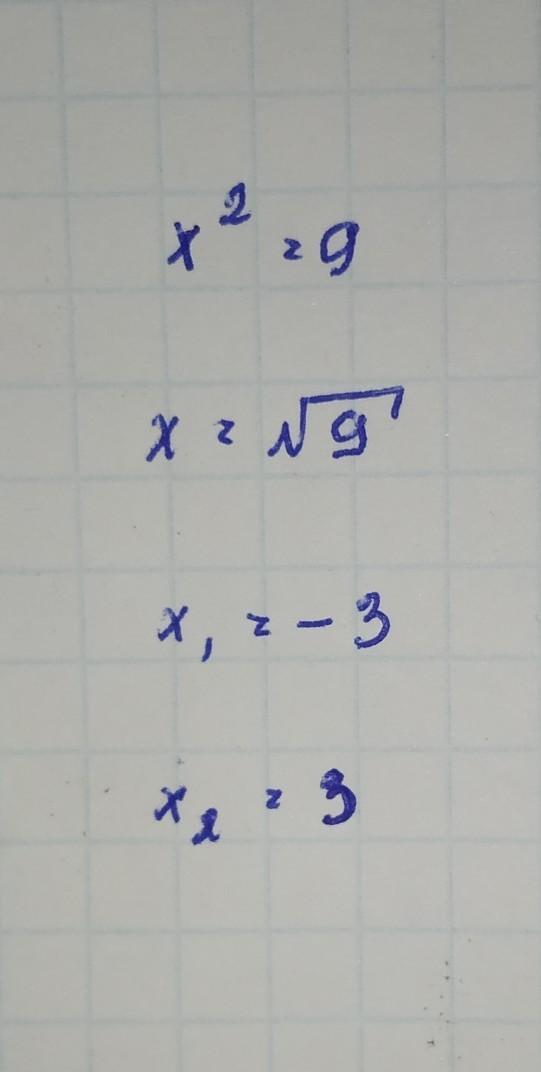 x² = 9
x = √9
x₁ = - 3
x₂ = 3